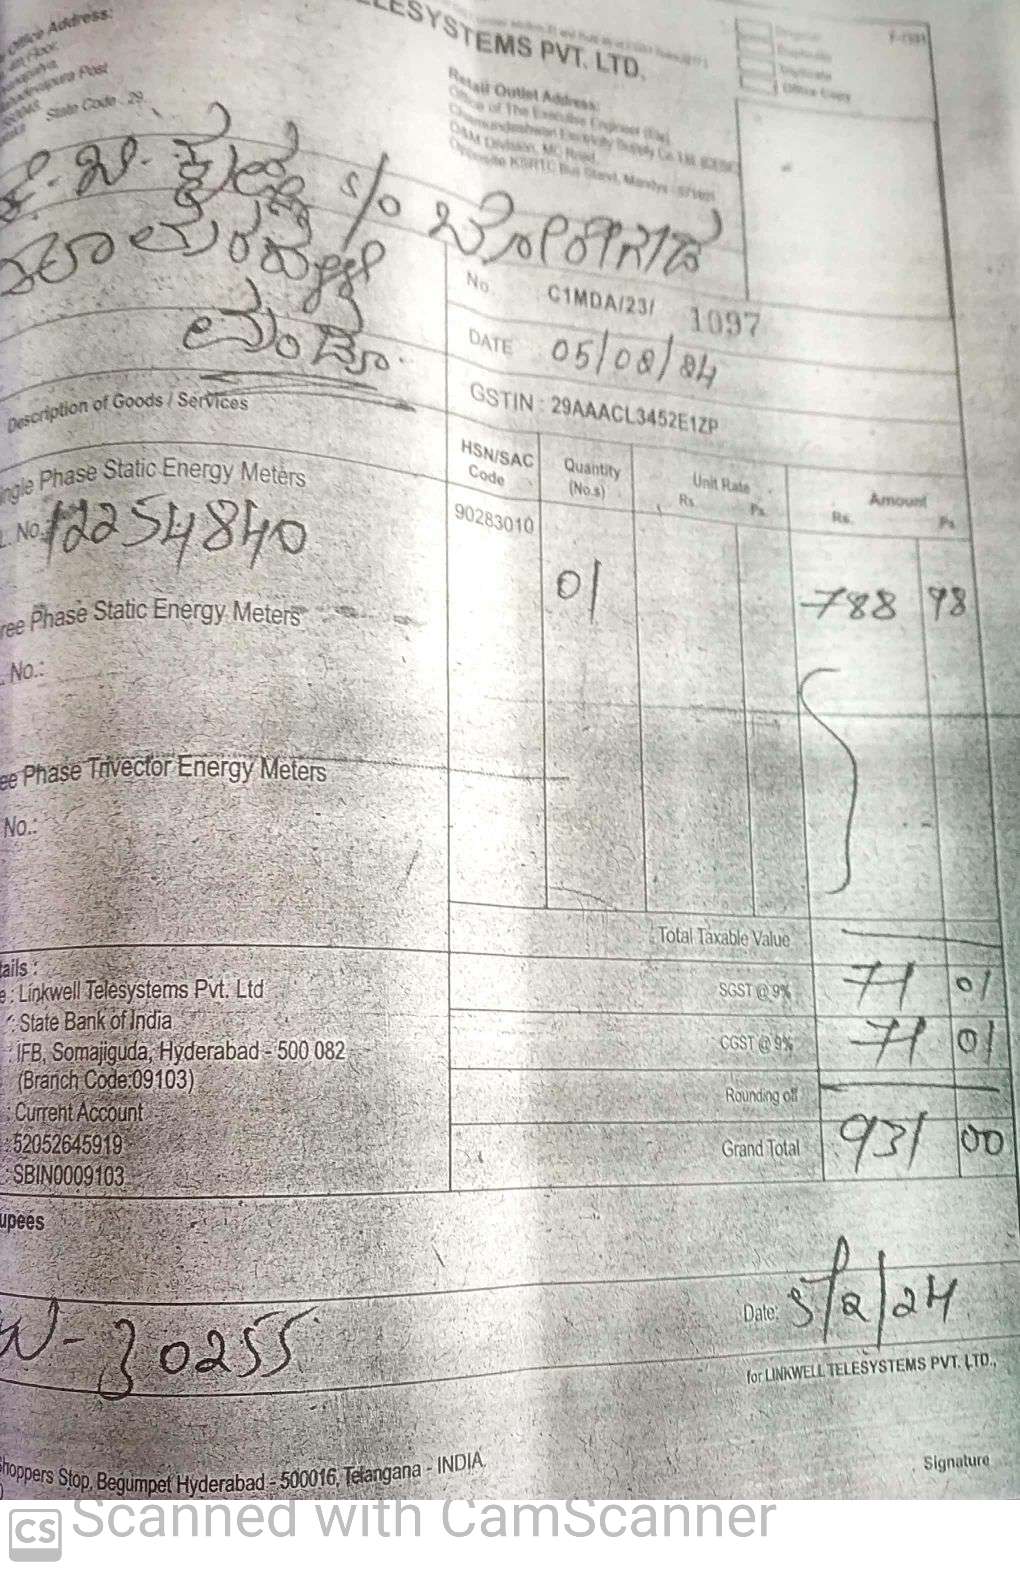 Office Address:
State Code : 29
TELESYSTEMS PVT. LTD.
Retail Outlet Address:
Office of The Executive Engineer (Ele)
Chamundeshwari Electricity Supply Co. Ltd.
O&M Division, MC Road,
Opposite KSRTC Bus Stand, Mandya - 571401
Office Copy
s/o
ಮಂಡ್ಯ.
No. C1MDA/23/ 1097
DATE 05/02/24
GSTIN : 29AAACL3452E1ZP
Description of Goods / Services
HSN/SAC Code
Quantity (No.s)
Unit Rate Rs. Ps.
Amount Rs. Ps
ingle Phase Static Energy Meters
90283010
. No. 12254840
01
788 98
ree Phase Static Energy Meters
. No.:
ee Phase Trivector Energy Meters
No.:
Total Taxable Value
tails :
e : Linkwell Telesystems Pvt. Ltd
SGST @ 9% 71 01
: State Bank of India
: IFB, Somajiguda, Hyderabad - 500 082
CGST @ 9% 71 01
(Branch Code:09103)
Rounding off
: Current Account
: 52052645919
Grand Total 931 00
: SBIN0009103
upees
Date: 5/2/24
W-30255
for LINKWELL TELESYSTEMS PVT. LTD.,
Signature
hoppers Stop, Begumpet Hyderabad - 500016, Telangana - INDIA
CS Scanned with CamScanner